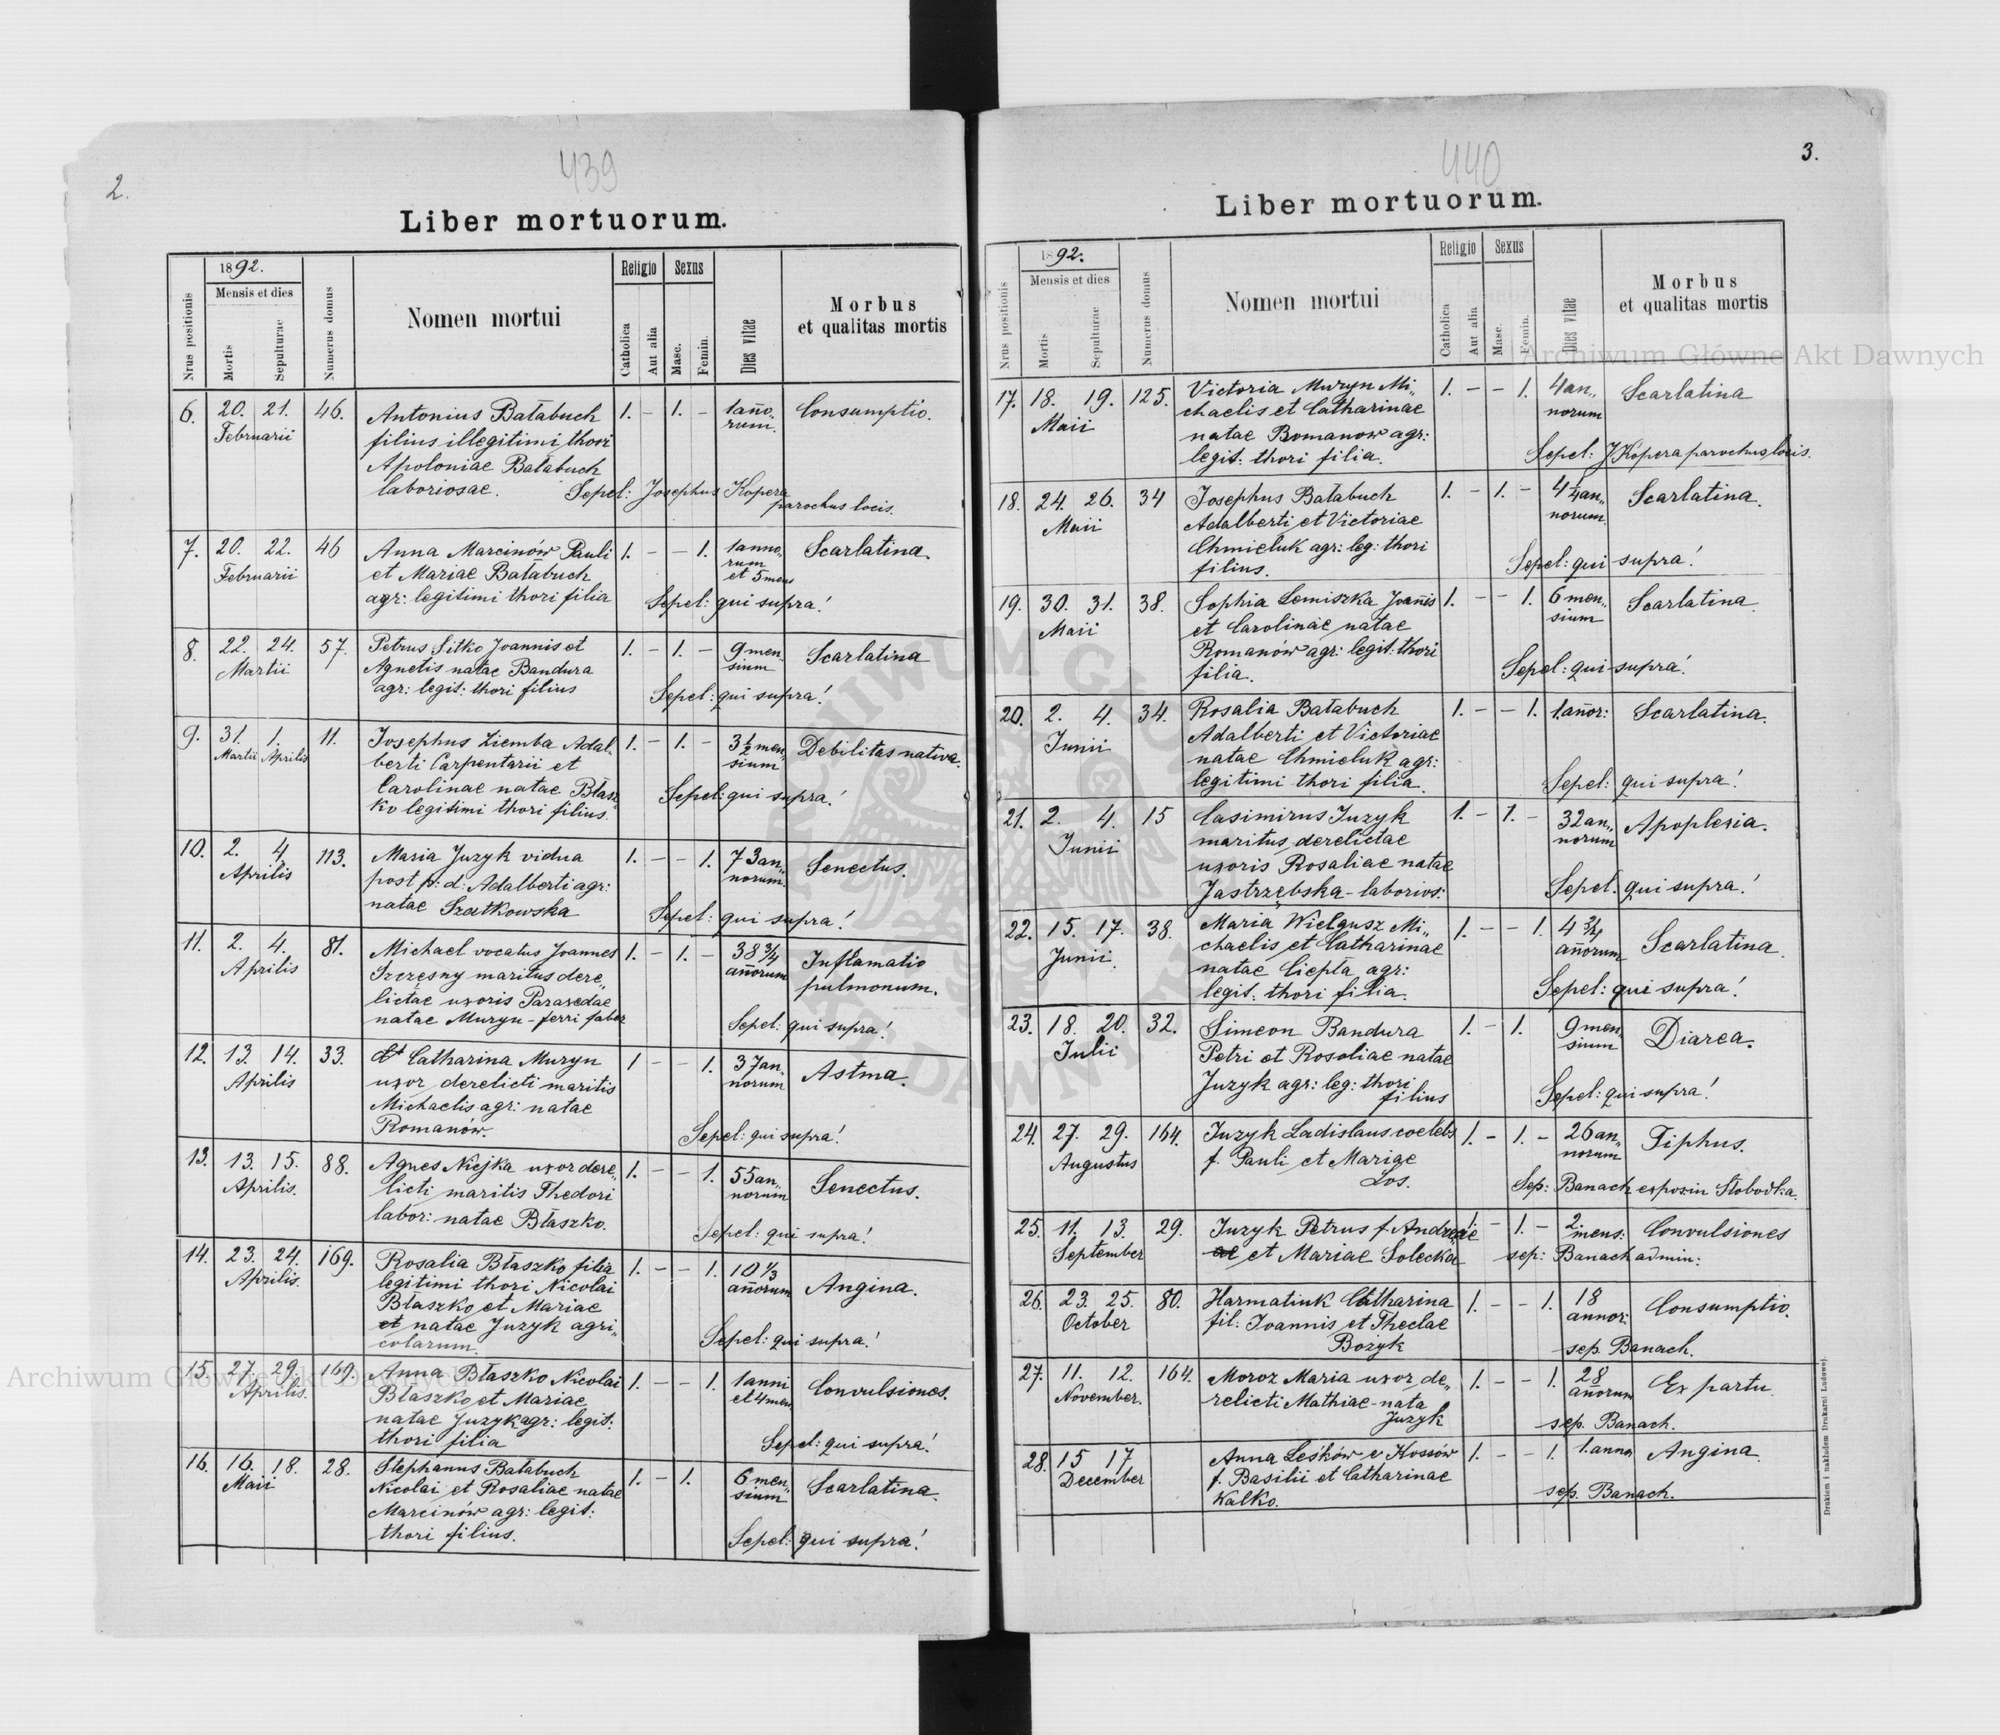 2.
439
Liber mortuorum.
Nrus positionis
1892.
Mensis et dies
Mortis
Sepulturae
Numerus domus
Nomen mortui
Religio
Catholica
Aut alia
Sexus
Masc.
Femin.
Dies vitae
Morbus
et qualitas mortis
6. 20. 21. 46. Antonius Bałabuch 1. - 1. - 1 año- Consumptio.
Februarii filius illegitimi thori rum.
Apoloniae Bałabuch
laboriosae. Sepel: Josephus Kopera
parochus loci.
7. 20. 22. 46 Anna Marcinów Pauli 1. - - 1. 1 anno- Scarlatina.
Februarii et Mariae Bałabuch rum
et 5 mens
agr: legitimi thori filia Sepel: qui supra!
8. 22. 24. 57. Petrus Sitko Joannis et 1. - 1. - 9 men„ Scarlatina
Martii Agnetis natae Bandura sium
agr: legit: thori filius Sepel: qui supra!
9. 31. 1. 11. Josephus Ziemba Adal- 1. - 1. - 3 1/2 men„ Debilitas nativa.
Martii Aprilis berti Carpentarii et sium
Carolinae natae Błasz„ Sepel: qui supra!
ko legitimi thori filius.
10. 2. 4. 113. Maria Juzyk vidua 1. - - 1. 73 an„ Senectus.
Aprilis post p: d: Adalberti agr: norum.
natae Szatkowska Sepel: qui supra!
11. 2. 4. 81. Michael vocatus Joannes 1. - 1. - 38 3/4 Inflamatio
Aprilis Szczęsny maritus dere„ añorum pulmonum.
lictae uxoris Paraxedae
natae Muryn - ferri faber Sepel: qui supra!
12. 13. 14. 33. Catharina Muryn 1 - - 1. 37 an„ Astma.
Aprilis uxor derelicti maritis norum
Michaelis agr: natae
Romanów. Sepel: qui supra!
13. 13. 15. 88. Agnes Niejka uxor dere„ 1. - - 1. 55 an„ Senectus.
Aprilis. licti maritis Thedori norum
labor: natae Błaszko. Sepel: qui supra!
14. 23. 24. 169. Rosalia Błaszko filia 1. - - 1. 10 1/3 Angina.
Aprilis. legitimi thori Nicolai añorum
Błaszko et Mariae
et natae Juzyk agri„ Sepel: qui supra!
colarum.
15. 27. 29. 169. Anna Błaszko Nicolai 1. - - 1. 1 anni Convulsiones.
Aprilis. Błaszko et Mariae et 4 men
natae Juzyk agr: legit:
thori filia Sepel: qui supra!
16. 16. 18. 28. Stephanus Bałabuch 1. - 1. 6 men„ Scarlatina.
Maii Nicolai et Rosaliae natae sium
Marcinów agr: legit:
thori filius. Sepel: qui supra!
3.
440
Liber mortuorum.
Nrus positionis
1892.
Mensis et dies
Mortis
Sepulturae
Numerus domus
Nomen mortui
Religio
Catholica
Aut alia
Sexus
Masc.
Femin.
Dies vitae
Morbus
et qualitas mortis
17. 18. 19. 125. Victoria Muryn Mi„ 1. - - 1. 4 an„ Scarlatina
Maii chaelis et Catharinae norum
natae Romanow agr:
legit: thori filia. Sepel: J Kopera parochus loci.
18. 24. 26. 34 Josephus Bałabuch 1. - 1. - 4 1/4 an„ Scarlatina.
Maii Adalberti et Victoriae norum.
Chmieluk agr: leg: thori
filius. Sepel: qui supra!
19. 30. 31. 38. Sophia Lemiszka Joañis 1. - - 1. 6 men„ Scarlatina.
Maii et Carolinae natae sium
Romanów agr: legit: thori
filia. Sepel: qui supra!
20. 2. 4. 34. Rosalia Bałabuch 1. - - 1. 1. añor: Scarlatina.
Junii Adalberti et Victoriae
natae Chmieluk agr:
legitimi thori filia. Sepel: qui supra!
21. 2. 4. 15 Casimirus Juzyk 1. - 1. - 32 an„ Apoplexia.
Junii maritus derelictae norum
uxoris Rosaliae natae
Jastrzębska - laborios: Sepel: qui supra!
22. 15. 17. 38. Maria Wielgusz Mi„ 1. - - 1. 4 3/4 Scarlatina.
Junii. chaelis et Catharinae añorum
natae Ciepła agr:
legit: thori filia. Sepel: qui supra!
23. 18. 20. 32. Simeon Bandura 1. - 1. 9 men„ Diarea.
Julii Petri et Rosaliae natae sium
Juzyk agr: leg: thori
filius Sepel: qui supra!
24. 27. 29. 164. Juzyk Ladislaus coelebs 1. - 1. - 26 an„ Tiphus.
Augustus f. Pauli et Mariae norum
Los. Sep: Banach exposin Słobodka.
25. 11. 13. 29. Juzyk Petrus f. Andreae 1. - 1. - 2 mens: Convulsiones
September et Mariae Solecka sep: Banach admin:
26. 23. 25. 80. Harmatiuk Catharina 1. - - 1. 18 annor: Consumptio.
October fil: Joannis et Theclae
Bożyk sep. Banach.
27. 11. 12. 164. Moroz Maria uxor de„ 1. - - 1. 28 añorum Ex partu.
November. relicti Mathiae - nata
Juzyk sep. Banach.
28. 15 17 Anna Leśków v Kossów 1. - - 1. 1. anno Angina.
December f. Basilii et Catharinae
Kalko. sep. Banach.
Drukiem i nakładem Drukarni Ludowej.
Archiwum Główne Akt Dawnych
Archiwum Główne Akt Dawnych
ARCHIWUM GŁÓWNE AKT DAWNYCH